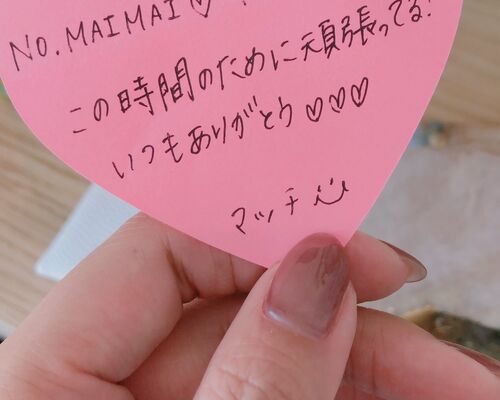 NO. MAIMAI♡
この時間のために頑張ってる!
いつもありがとう♡♡♡
マッチ